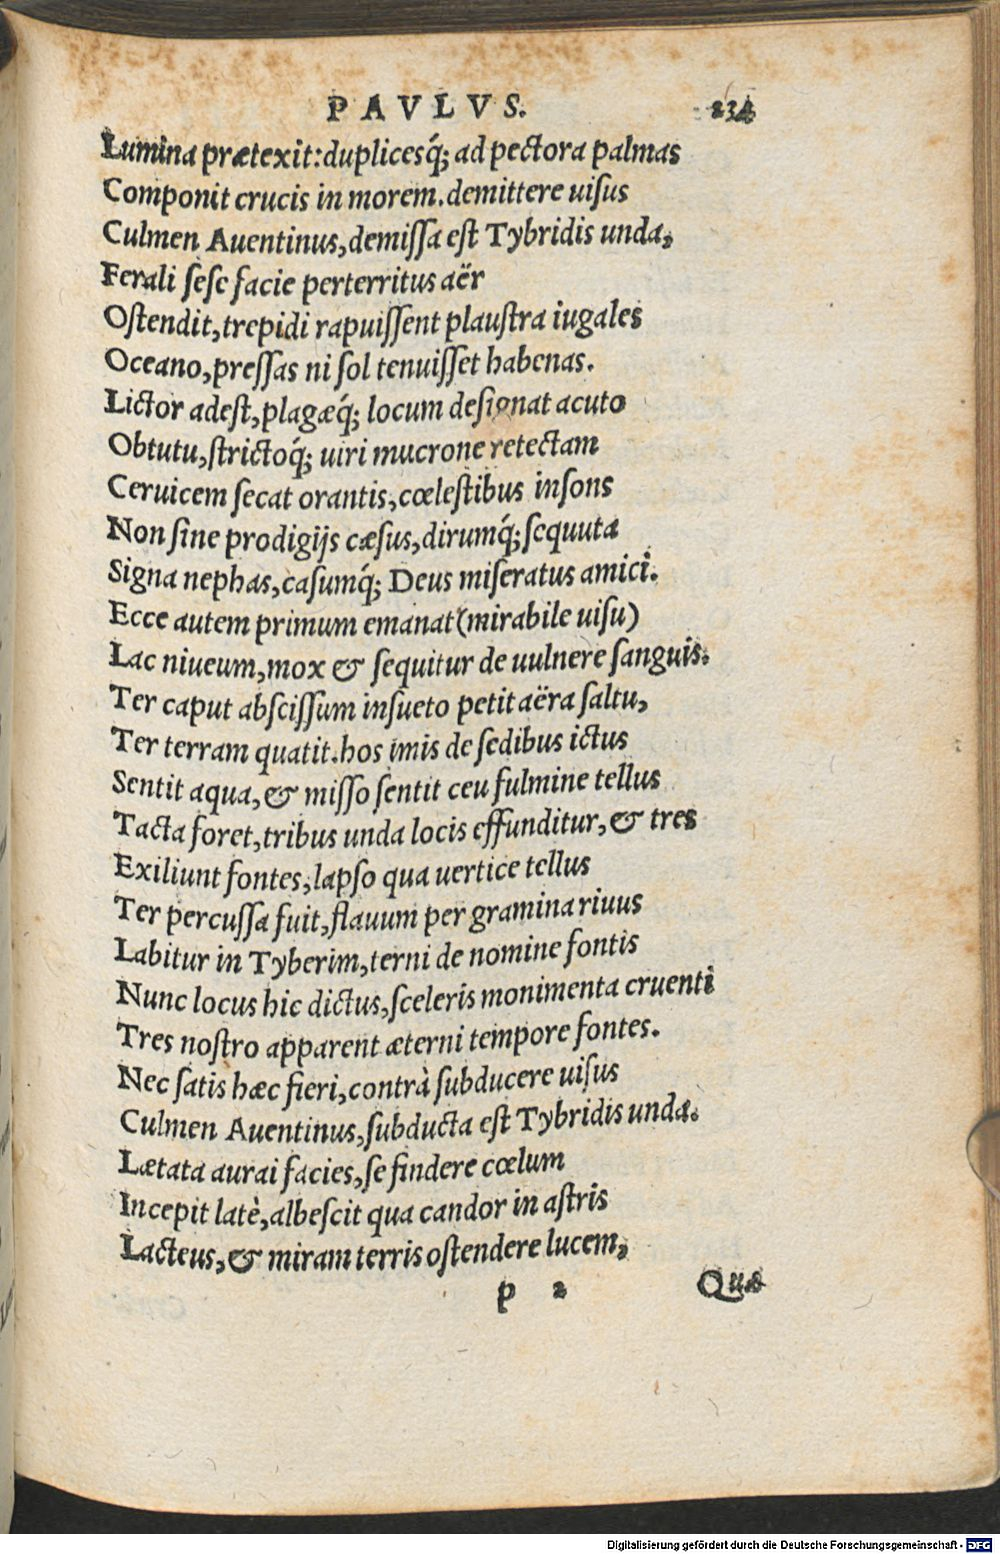 PAVLVS. 234
Lumina prætexit: duplicesq́; ad pectora palmas
Componit crucis in morem. demittere uiſus
Culmen Auentinus, demiſſa eſt Tybridis unda,
Ferali ſeſe facie perterritus aër
Oſtendit, trepidi rapuiſſent plauſtra iugales
Oceano, preſſas ni ſol tenuiſſet habenas.
Lictor adeſt, plagæq́; locum deſignat acuto
Obtutu, ſtrictoq́; uiri mucrone retectam
Ceruicem ſecat orantis, cœleſtibus inſons
Non ſine prodigijs cæſus, dirumq́; ſequuta
Signa nephas, caſumq́; Deus miſeratus amici.
Ecce autem primum emanat (mirabile uiſu)
Lac niueum, mox & ſequitur de uulnere ſanguis.
Ter caput abſciſſum inſueto petit aëra ſaltu,
Ter terram quatit. hos imis de ſedibus ictus
Sentit aqua, & miſſo ſentit ceu fulmine tellus
Tacta foret, tribus unda locis effunditur, & tres
Exiliunt fontes, lapſo qua uertice tellus
Ter percuſſa fuit, flauum per gramina riuus
Labitur in Tyberim, terni de nomine fontis
Nunc locus hic dictus, ſceleris monimenta cruenti
Tres noſtro apparent æterni tempore fontes.
Nec ſatis hæc fieri, contrà ſubducere uiſus
Culmen Auentinus, ſubducta eſt Tybridis unda.
Lætata aurai facies, ſe findere cœlum
Incepit latè, albeſcit qua candor in aſtris
Lacteus, & miram terris oſtendere lucem,
p 2 Quæ
Digitalisierung gefördert durch die Deutsche Forschungsgemeinschaft - DFG